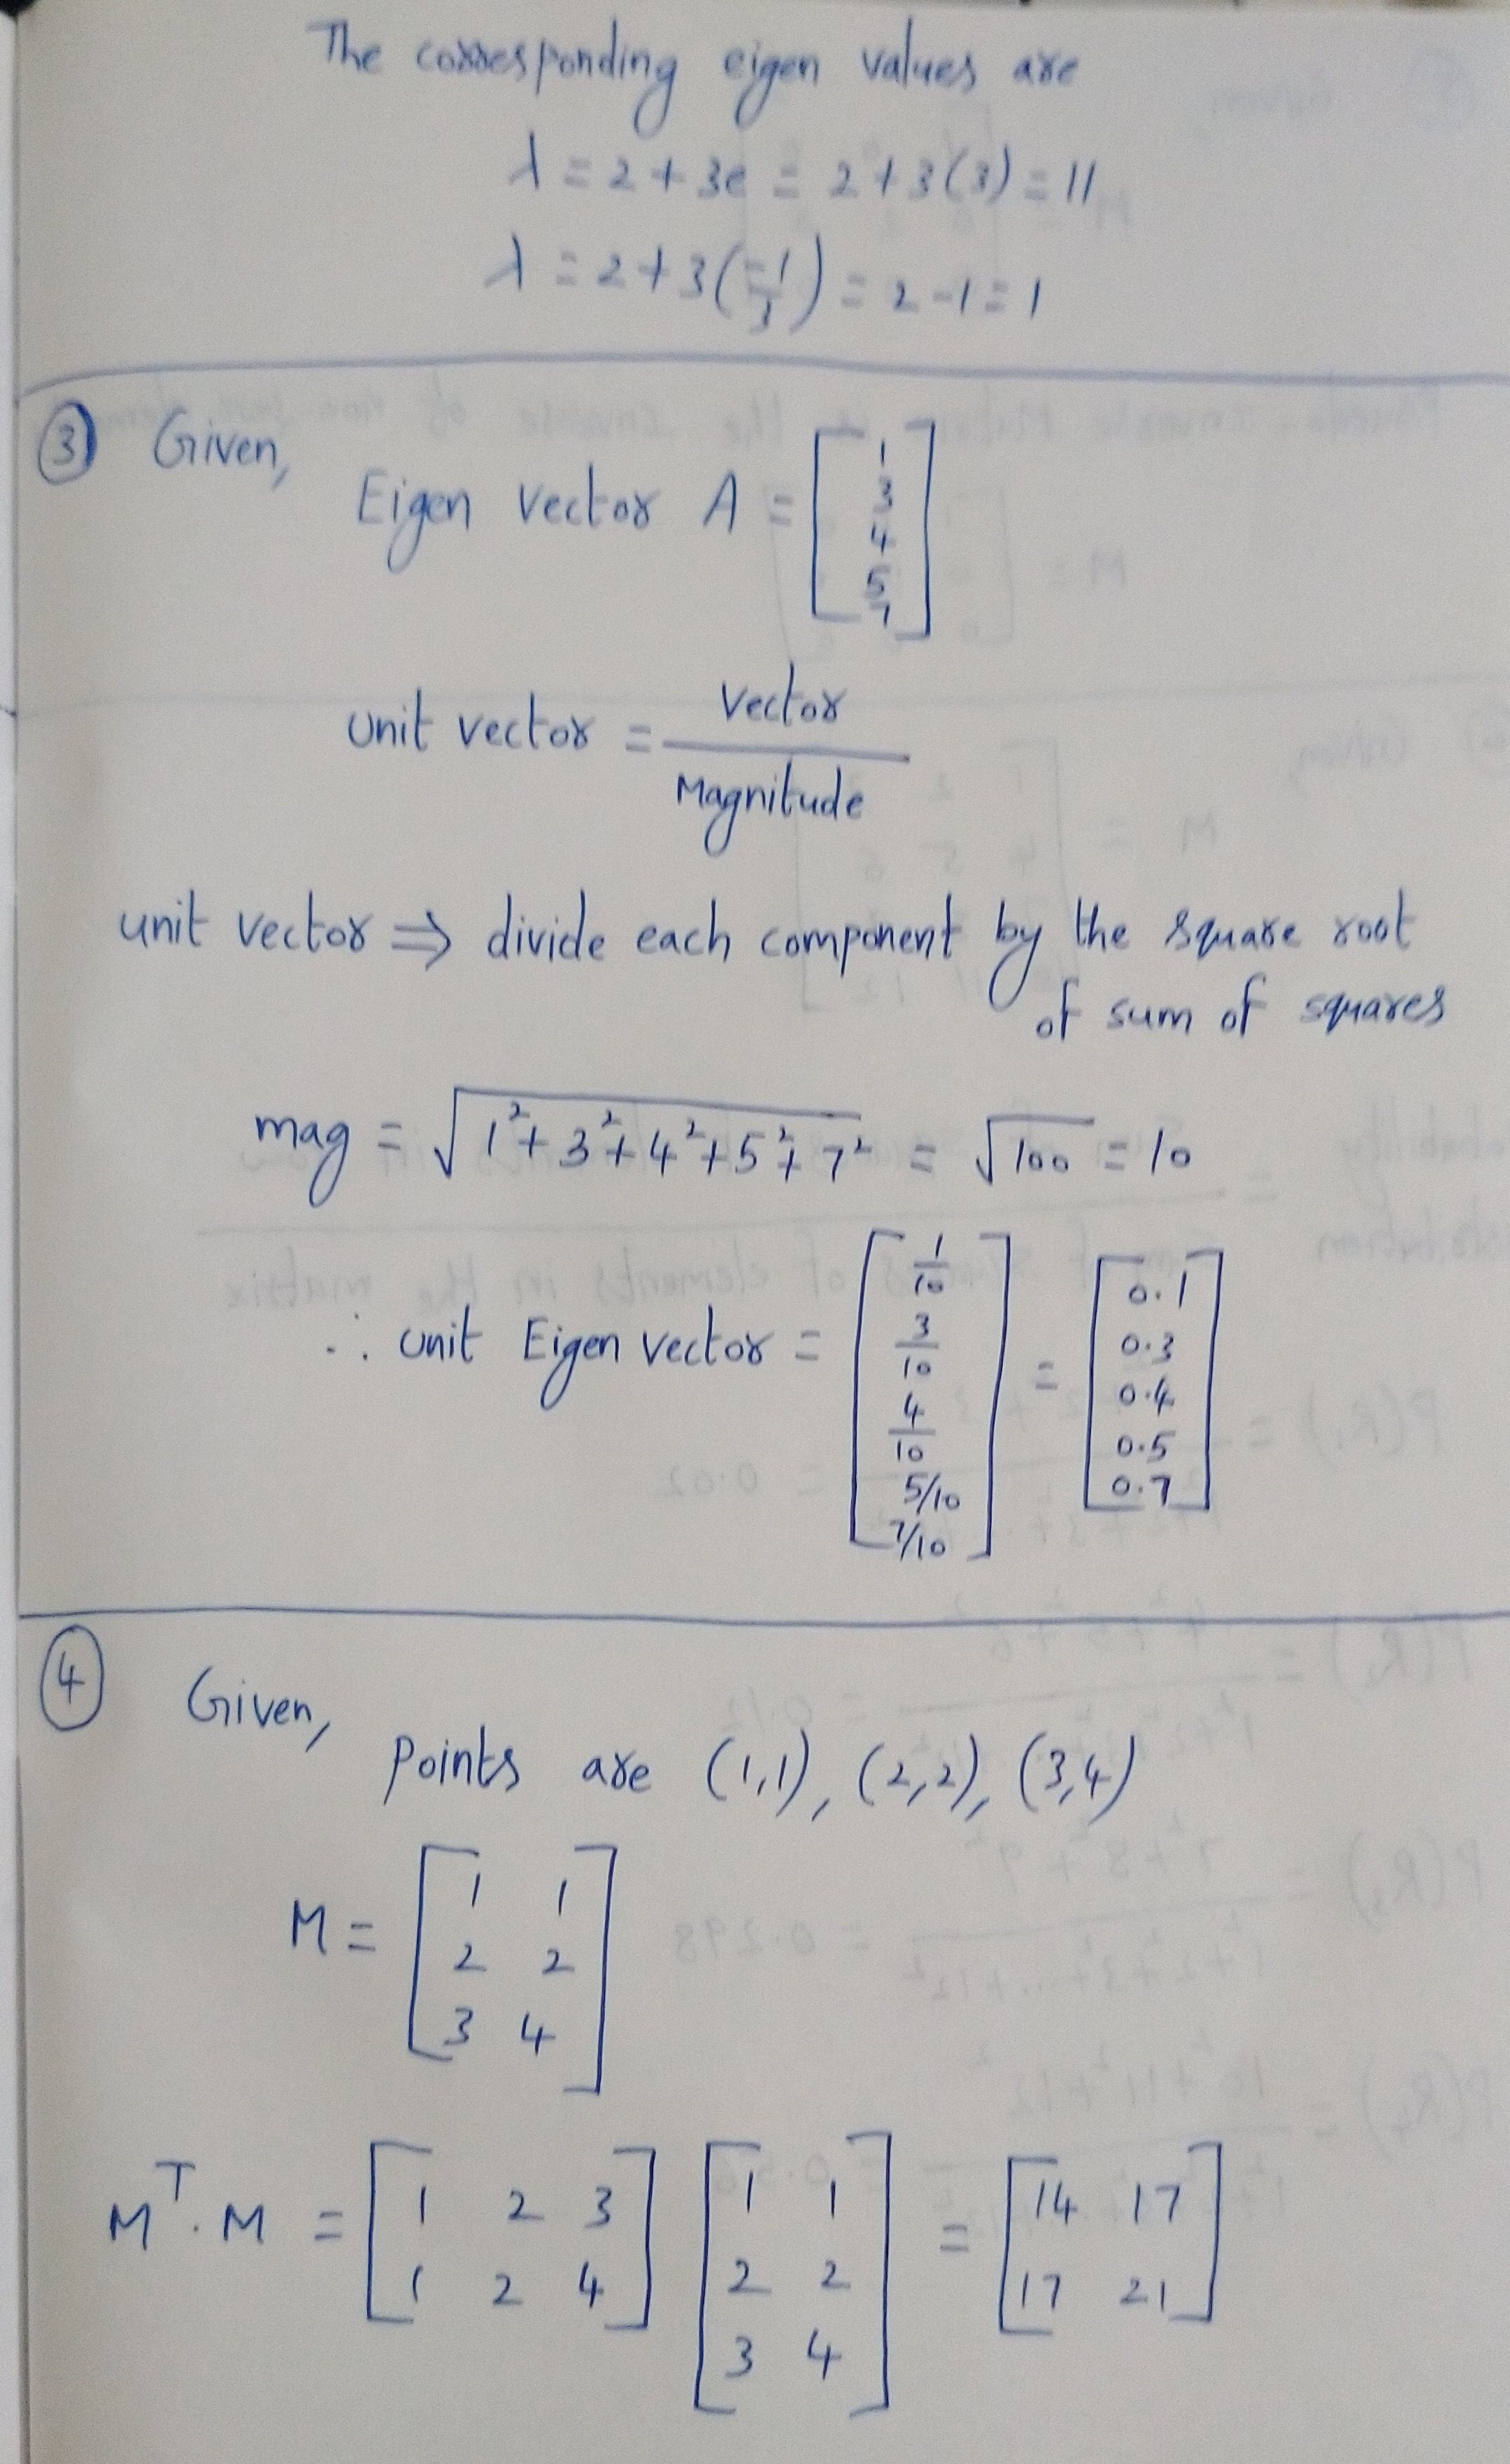 The corresponding eigen values are
λ = 2 + 3e = 2 + 3(3) = 11
λ = 2 + 3(-1/3) = 2 - 1 = 1
③ Given,
Eigen vector A = [1 3 4 5 7]
unit vector = Vector / Magnitude
unit vector ⇒ divide each component by the square root
of sum of squares
mag = √(1² + 3² + 4² + 5² + 7²) = √100 = 10
∴ unit Eigen vector = [1/10 3/10 4/10 5/10 7/10] = [0.1 0.3 0.4 0.5 0.7]
④ Given,
points are (1,1), (2,2), (3,4)
M = [1 1
2 2
3 4]
Mᵀ.M = [1 2 3
1 2 4] [1 1
2 2
3 4] = [14 17
17 21]